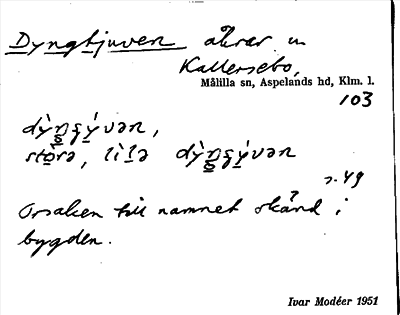 Dyngtjuven åkrar u
Kallersebo,
Målilla sn, Aspelands hd, Klm. l.
103
dỳŋʂývən,
stòrə, lìlə dỳŋʂývən
s. 49
Orsaken till namnet okänd i
bygden.
Ivar Modéer 1951